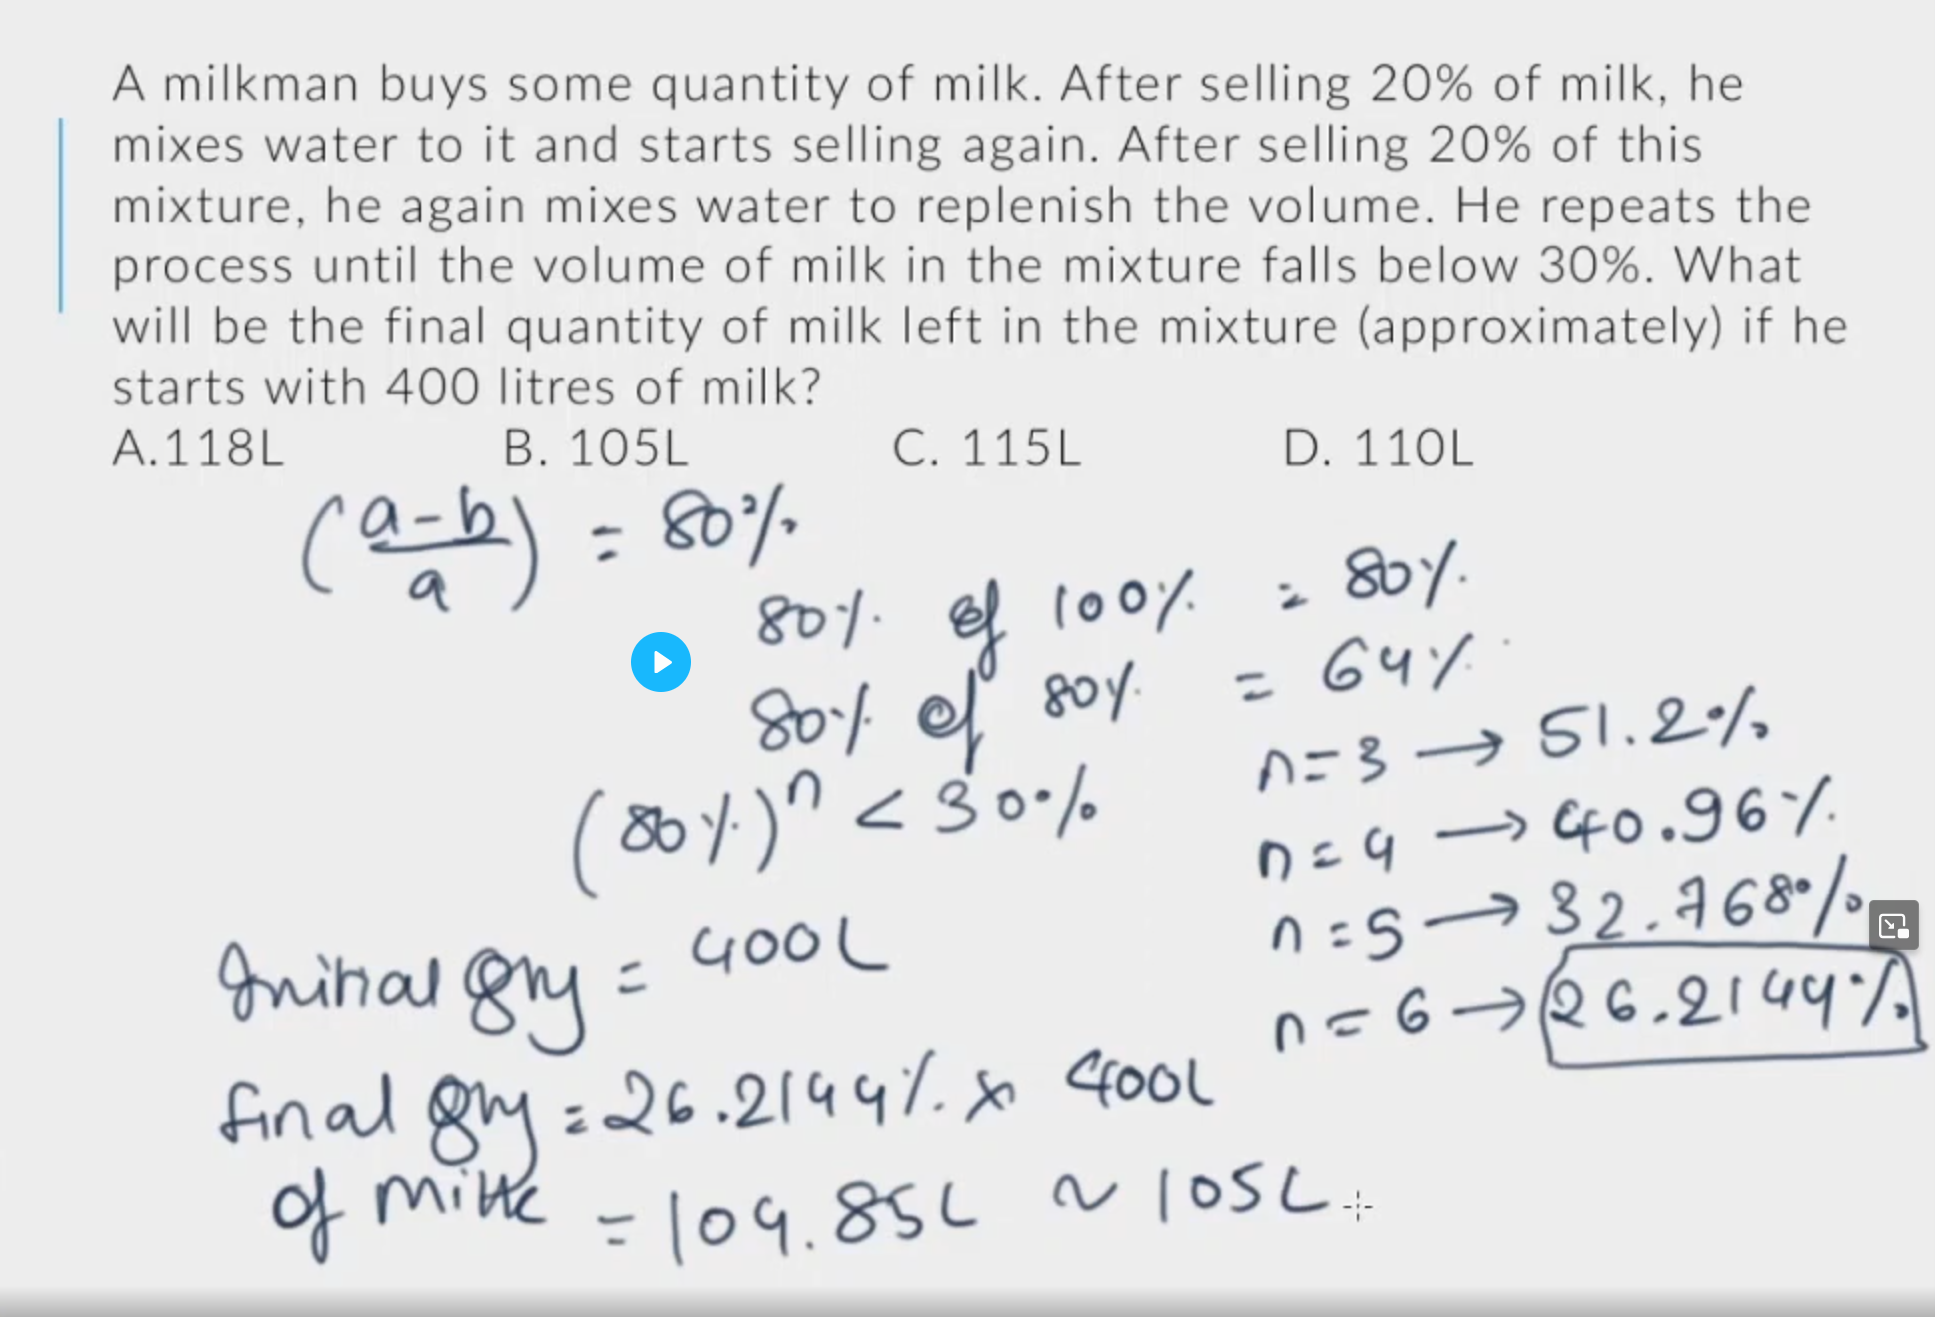 A milkman buys some quantity of milk. After selling 20% of milk, he
mixes water to it and starts selling again. After selling 20% of this
mixture, he again mixes water to replenish the volume. He repeats the
process until the volume of milk in the mixture falls below 30%. What
will be the final quantity of milk left in the mixture (approximately) if he
starts with 400 litres of milk?
A.118L B. 105L C. 115L D. 110L
(a-b/a) = 80%
80% of 100% = 80%
80% of 80% = 64%
n=3 → 51.2%
(80%)ⁿ < 30%
n=4 → 40.96%
n=5 → 32.768%
n=6 → 26.2144%
Initial qty = 400L
final qty = 26.2144% x 400L
of milk = 104.85L ~ 105L